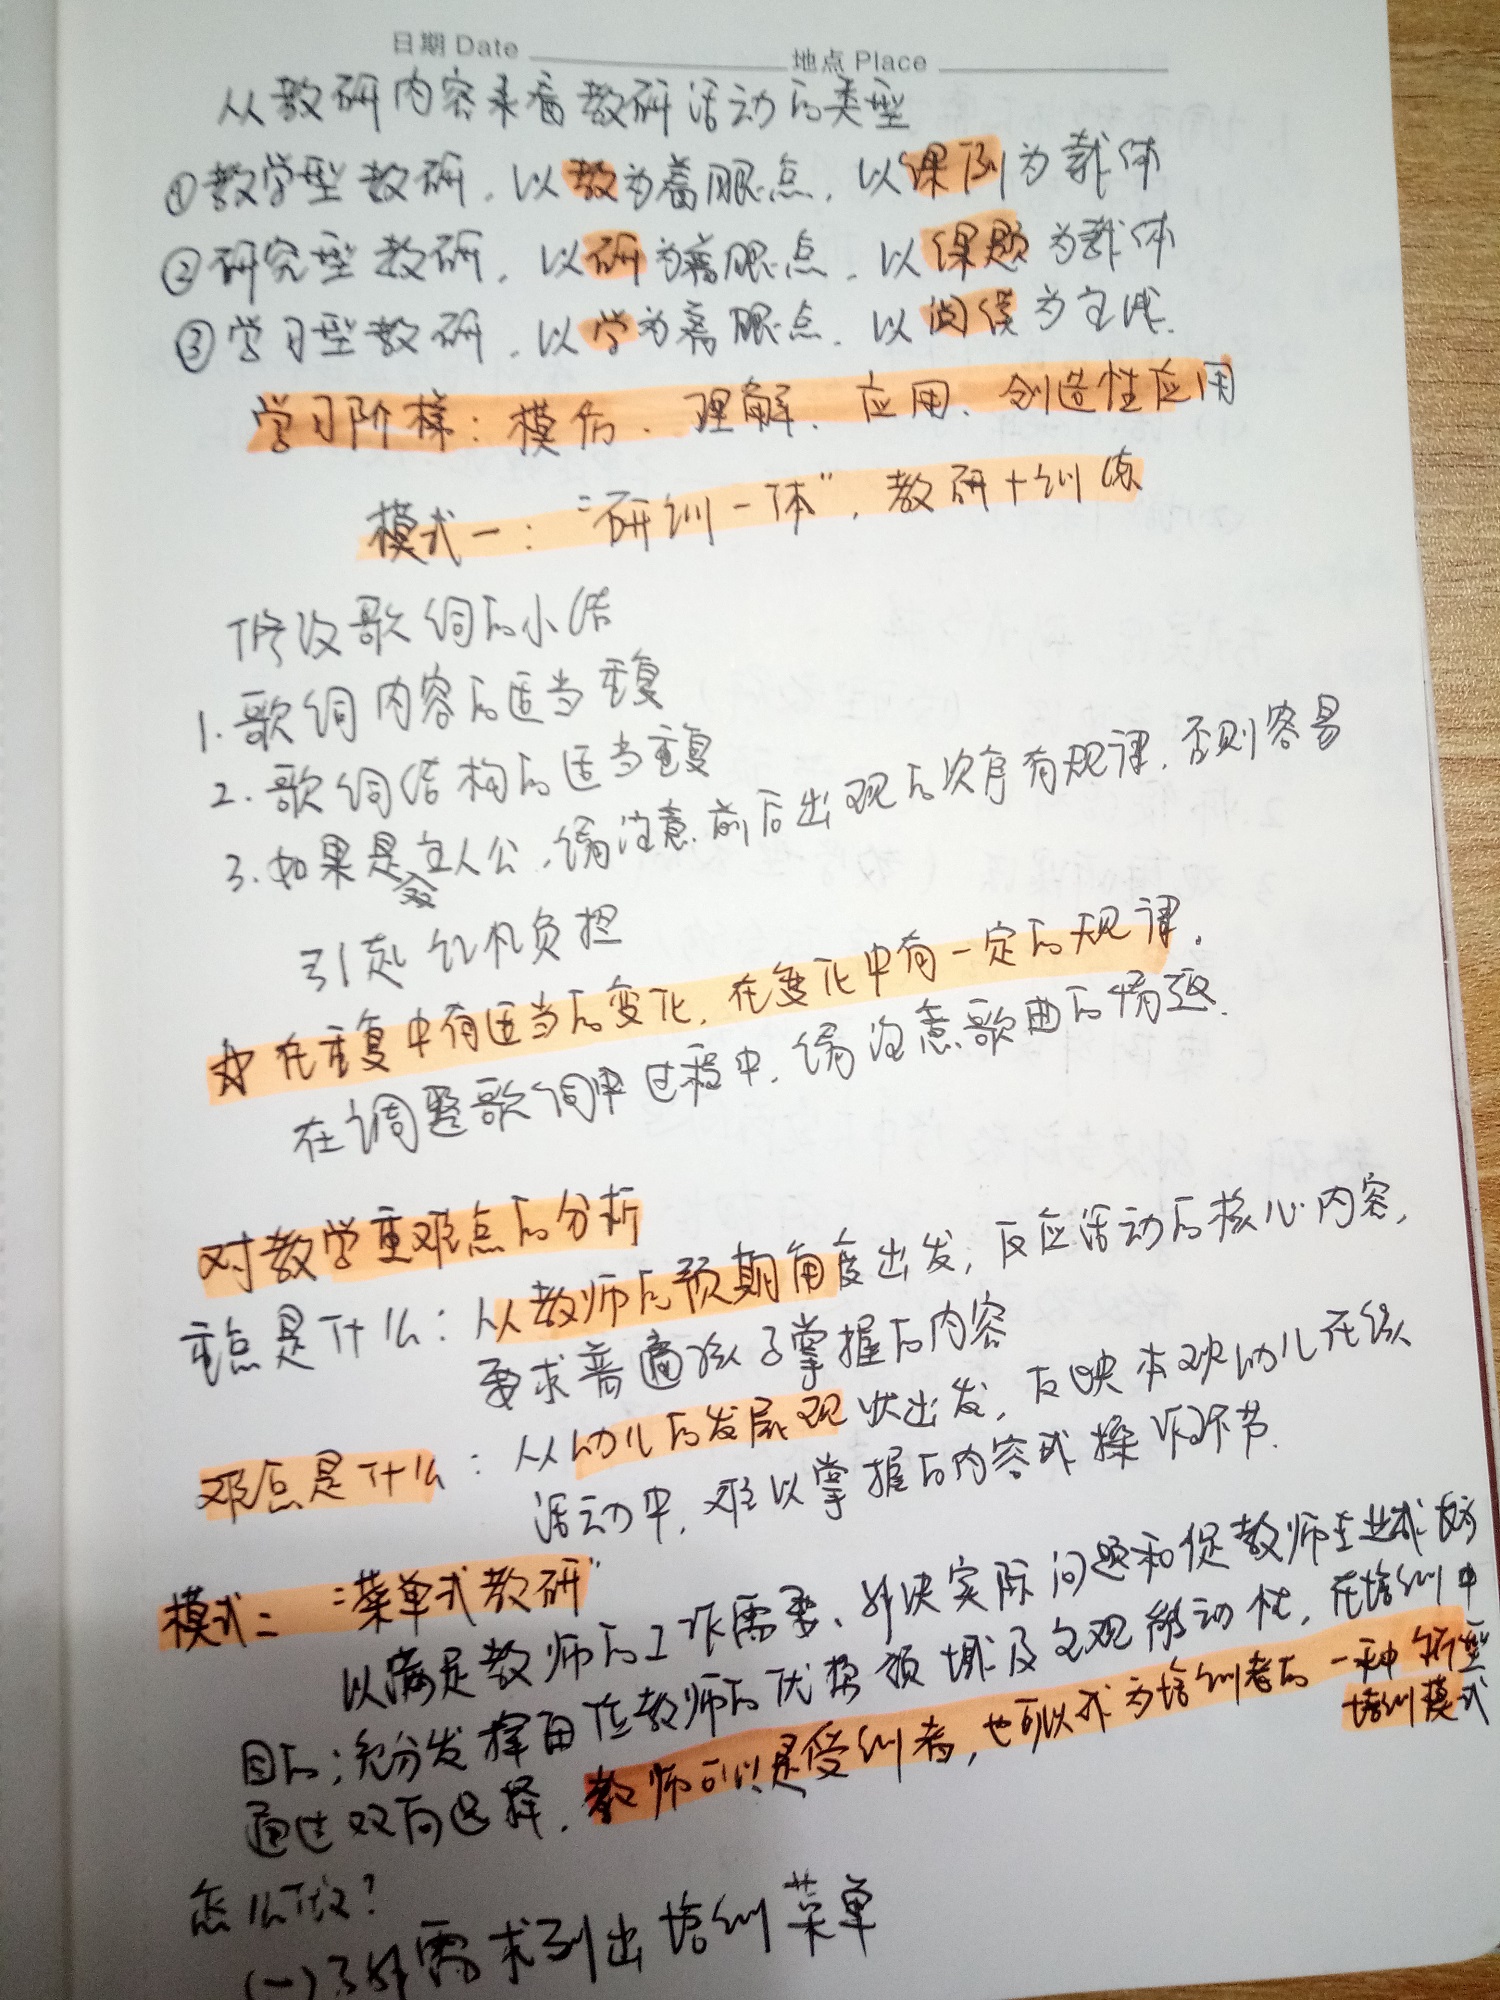 日期 Date 地点 Place
从教研内容来看教研活动的类型
①教学型教研，以教为着眼点，以课例为载体
②研究型教研，以研为着眼点，以课题为载体
③学习型教研，以学为着眼点，以阅读为主体.
学习阶梯：模仿、理解、应用、创造性应用
模式一：“研训一体”，教研+训练
修改歌词的小结
1.歌词内容的适当重复
2.歌词结构的适当重复
3.如果是主人公，需注意前后出现的次序有规律，否则容易
多
引起记忆负担
☆在重复中有适当的变化，在变化中有一定的规律.
在调整歌词中过程中，需注意歌曲的情趣.
对教学重难点的分析
重点是什么：从教师的预期角度出发，反应活动的核心内容，
要求普遍孩子掌握的内容
难点是什么：从幼儿的发展现状出发，反映本班幼儿在该
活动中，难以掌握的内容或操作环节.
模式二 “菜单式教研”
以满足教师的工作需要、解决实际问题和促教师专业成长为
目的；充分发挥每位教师的优势领域及主观能动性，在培训中
通过双向选择，教师可以是受训者，也可以成为培训者的一种新型
培训模式
怎么做？
(一)了解需求列出培训菜单